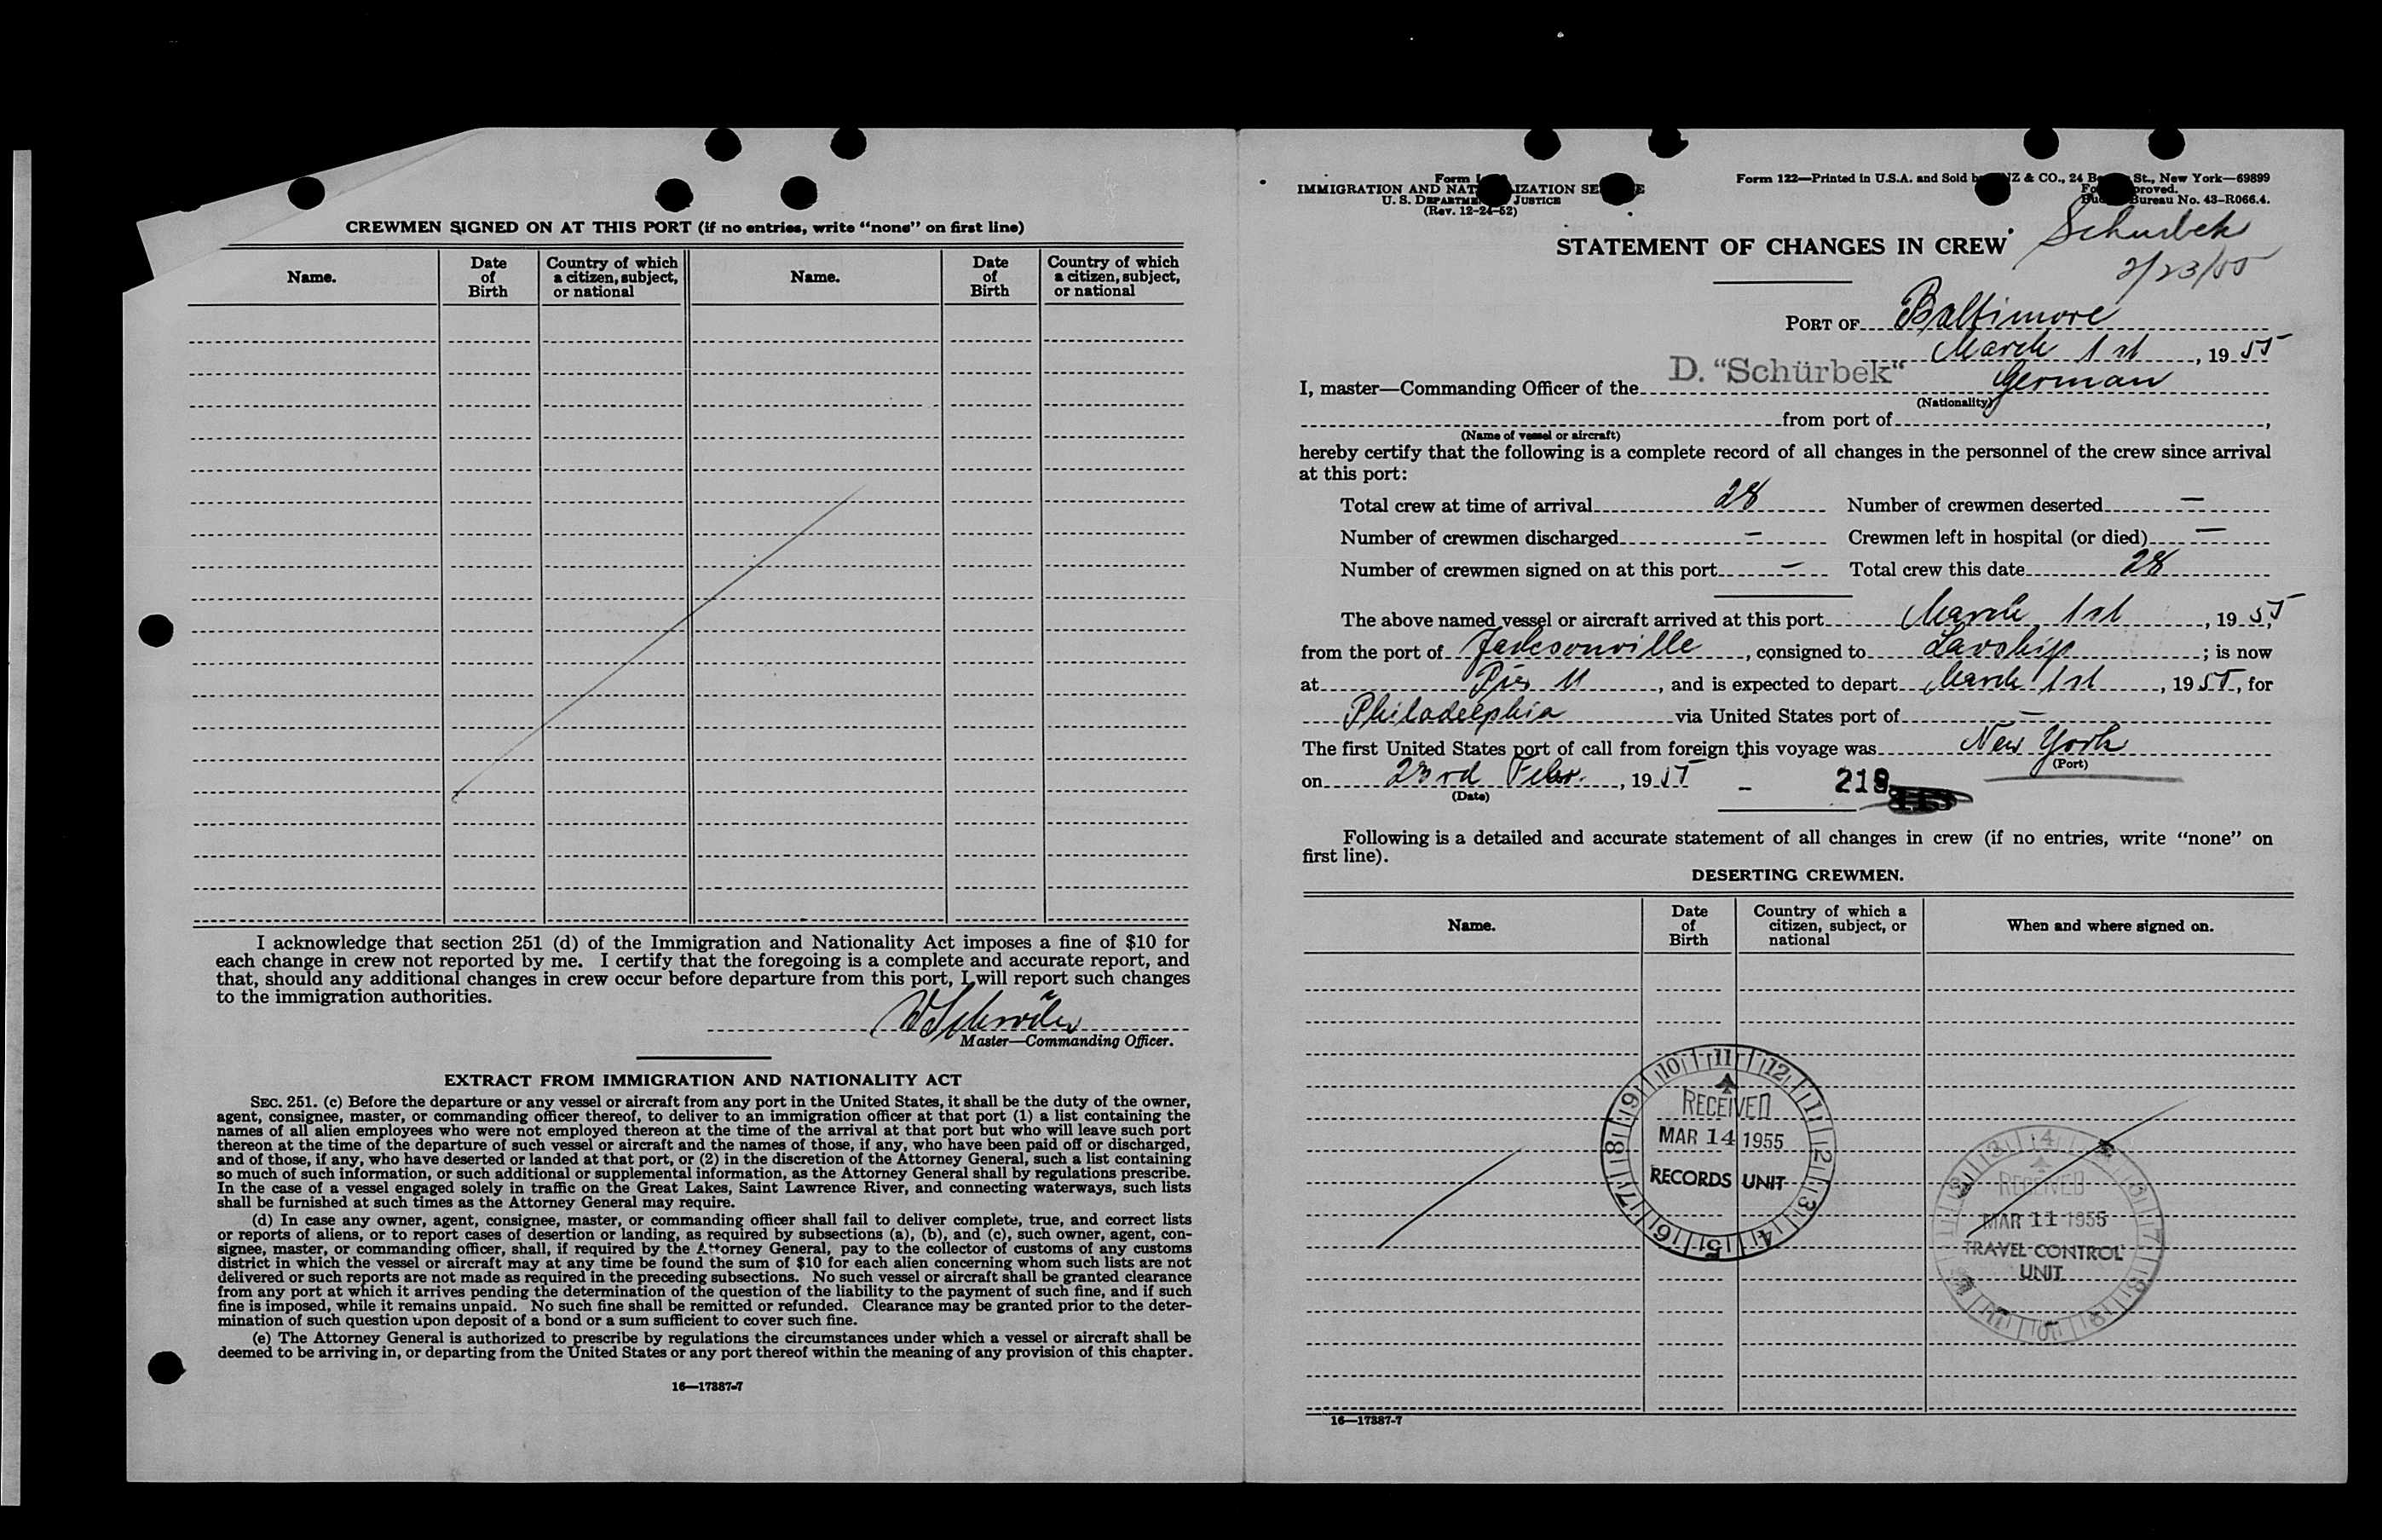 CREWMEN SIGNED ON AT THIS PORT (if no entries, write "none" on first line)
Name.
Date
of
Birth
Country of which
a citizen, subject,
or national
Name.
Date
of
Birth
Country of which
a citizen, subject,
or national
I acknowledge that section 251 (d) of the Immigration and Nationality Act imposes a fine of $10 for
each change in crew not reported by me. I certify that the foregoing is a complete and accurate report, and
that, should any additional changes in crew occur before departure from this port, I will report such changes
to the immigration authorities.
Master—Commanding Officer.
EXTRACT FROM IMMIGRATION AND NATIONALITY ACT
SEC. 251. (c) Before the departure or any vessel or aircraft from any port in the United States, it shall be the duty of the owner,
agent, consignee, master, or commanding officer thereof, to deliver to an immigration officer at that port (1) a list containing the
names of all alien employees who were not employed thereon at the time of the arrival at that port but who will leave such port
thereon at the time of the departure of such vessel or aircraft and the names of those, if any, who have been paid off or discharged,
and of those, if any, who have deserted or landed at that port, or (2) in the discretion of the Attorney General, such a list containing
so much of such information, or such additional or supplemental information, as the Attorney General shall by regulations prescribe.
In the case of a vessel engaged solely in traffic on the Great Lakes, Saint Lawrence River, and connecting waterways, such lists
shall be furnished at such times as the Attorney General may require.
(d) In case any owner, agent, consignee, master, or commanding officer shall fail to deliver complete, true, and correct lists
or reports of aliens, or to report cases of desertion or landing, as required by subsections (a), (b), and (c), such owner, agent, con-
signee, master, or commanding officer, shall, if required by the Attorney General, pay to the collector of customs of any customs
district in which the vessel or aircraft may at any time be found the sum of $10 for each alien concerning whom such lists are not
delivered or such reports are not made as required in the preceding subsections. No such vessel or aircraft shall be granted clearance
from any port at which it arrives pending the determination of the question of the liability to the payment of such fine, and if such
fine is imposed, while it remains unpaid. No such fine shall be remitted or refunded. Clearance may be granted prior to the deter-
mination of such question upon deposit of a bond or a sum sufficient to cover such fine.
(e) The Attorney General is authorized to prescribe by regulations the circumstances under which a vessel or aircraft shall be
deemed to be arriving in, or departing from the United States or any port thereof within the meaning of any provision of this chapter.
16—17387-7
Form
IMMIGRATION AND
U. S. JUSTICE
(Rev. 12-24-52)
Form 122—Printed in U.S.A. and Sold & CO., 24 St., New York—69899
Bureau No. 43-R066.4.
STATEMENT OF CHANGES IN CREW
Schurbek
2/23/55
PORT OF Baltimore
March 1st, 1955
I, master—Commanding Officer of the D. "Schürbek" German
(Nationality)
from port of ,
(Name of vessel or aircraft)
hereby certify that the following is a complete record of all changes in the personnel of the crew since arrival
at this port:
Total crew at time of arrival 28 Number of crewmen deserted —
Number of crewmen discharged — Crewmen left in hospital (or died) —
Number of crewmen signed on at this port — Total crew this date 28
The above named vessel or aircraft arrived at this port March 1st, 1955
from the port of Jacksonville, consigned to ; is now
at Pier 11, and is expected to depart March 1st, 1955, for
Philadelphia via United States port of —
The first United States port of call from foreign this voyage was New York
(Port)
on 23rd Febr., 1955
(Date)
- 219
Following is a detailed and accurate statement of all changes in crew (if no entries, write "none" on
first line).
DESERTING CREWMEN.
Name.
Date
of
Birth
Country of which a
citizen, subject, or
national
When and where signed on.
10 11 12 1 2 3 4 5 6 7 8 9
RECEIVED
MAR 14 1955
RECORDS UNIT
RECEIVED
MAR 11 1955
TRAVEL CONTROL
UNIT
16—17387-7